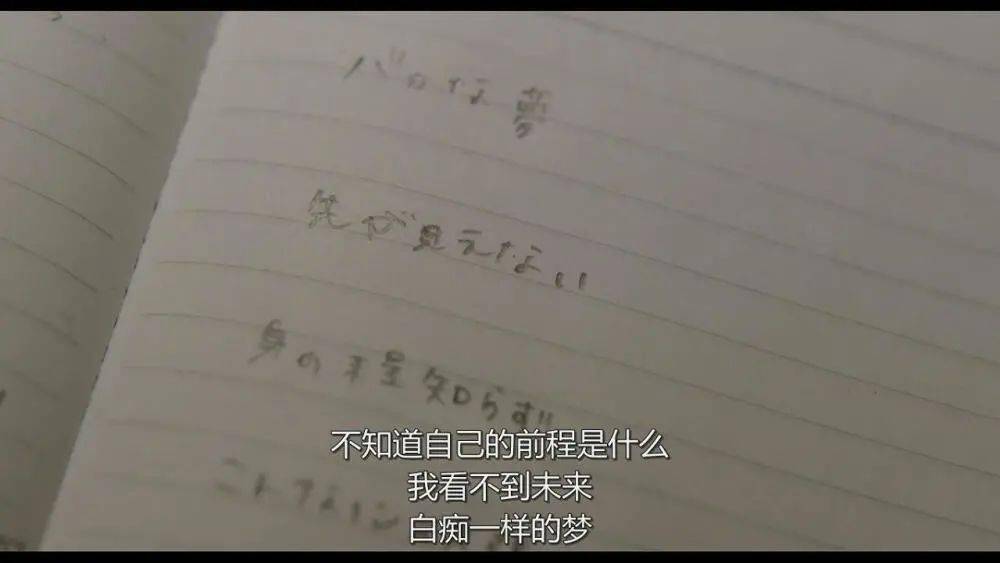 バカな夢
先が見えない
身の程知らず
不知道自己的前程是什么
我看不到未来
白痴一样的梦